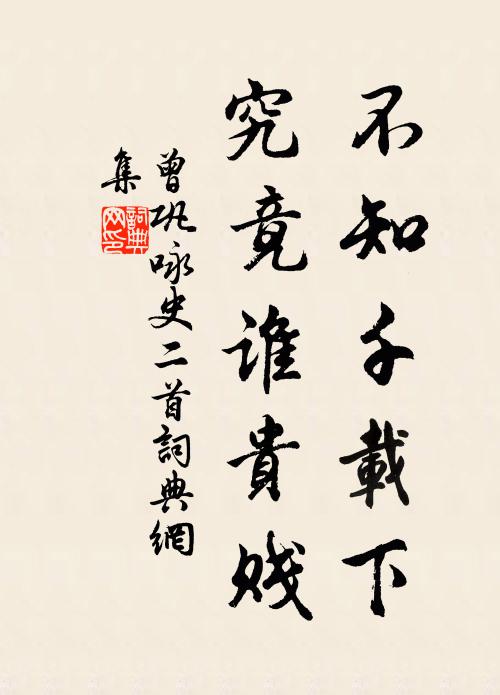 不知千載下
究竟誰貴賤
曾巩咏史二首詞典網
集
詞典
网印